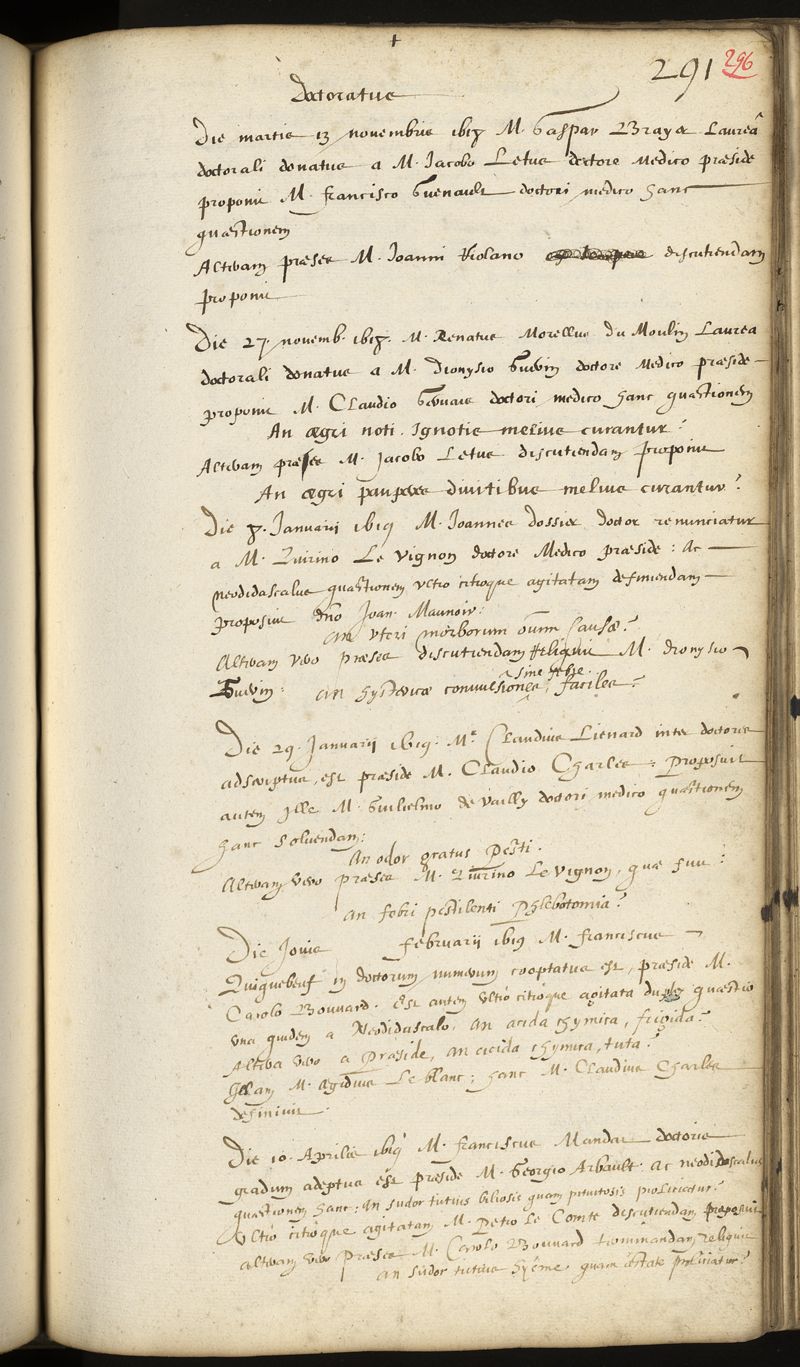 291 296
Doctoratus
Die martis 13 novembris 1618 M. Gaspar Brayer Laureâ
doctorali donatus a M. Jacobo Letus doctore Medico præside
proponit M. Francisco Guenault doctori medico hanc
quæstionem
Alteram præses M. Joanni Riolano discutiendam
proponit
Die 27. novemb. 1618. M. Renatus Morellus Du Moulin Laurea
doctorali donatus a M. Dionysio Guerin doctore Medico præside
proponit M. Claudio Gervais doctori medico hanc quæstionem
An ægri noti. Ignotis melius curantur?
Alteram præses M. Jacobo Letus discutiendam proponit
An ægri pauperes divitibus melius curantur?
Die 8. Januarii 1619 M. Joannes Dossier doctor renunciatur
a M. Quirino Le Vignon doctore Medico præside: Ac
neodidascalus quæstionem ultro citroque agitatam definiendam
proposuit dno Joan. Maunoir:
an uteri morborum omnium causæ?
Alteram vero præses discutiendam reliquit M. Dionysio
Guerin: an hystericæ convulsiones, sine febre faciles?
Die 29. Januarii 1619. Mr. Claudius Lienard inter doctores
adscriptus, est præside M. Claudio Charles: Proposuit
autem Ille M. Guilielmo de Vailly doctori medico quæstionem
hanc solvendam:
An odor gratus pesti.
Alteram vero præses M. Quirino Le Vignon, quæ fuit:
an febri pestilenti Phlebotomia?
Die Jovis Februarii 1619 M. Franciscus
Quiquebeuf in doctorum numerum cooptatus est, præside M.
Carolo Bouvard. Est autem ultro citroque agitata duplex quæstio
una quidem a Neodidascalo, An acida chymica, frigida?
Altera vero a Præside, an acida chymica, tuta?
Illam M. Ægidius Le blanc; hanc M. Claudius Charles
definivit.
Die 10. Aprilis 1619 M. Franciscus Mandat doctoris
gradum adeptus est præside M. Georgio Arbault. Ac neodidascalus
quæstionem hanc: An sudor tutius biliosis quam pituitosis proliciatur?
ultro citroque agitatam M. Petro Le Comte discutiendam proposuit
alteram vero Præses M. Carolo Bouvard terminandam reliquit
an sudor tutius hyeme, quam æstate proliciatur?